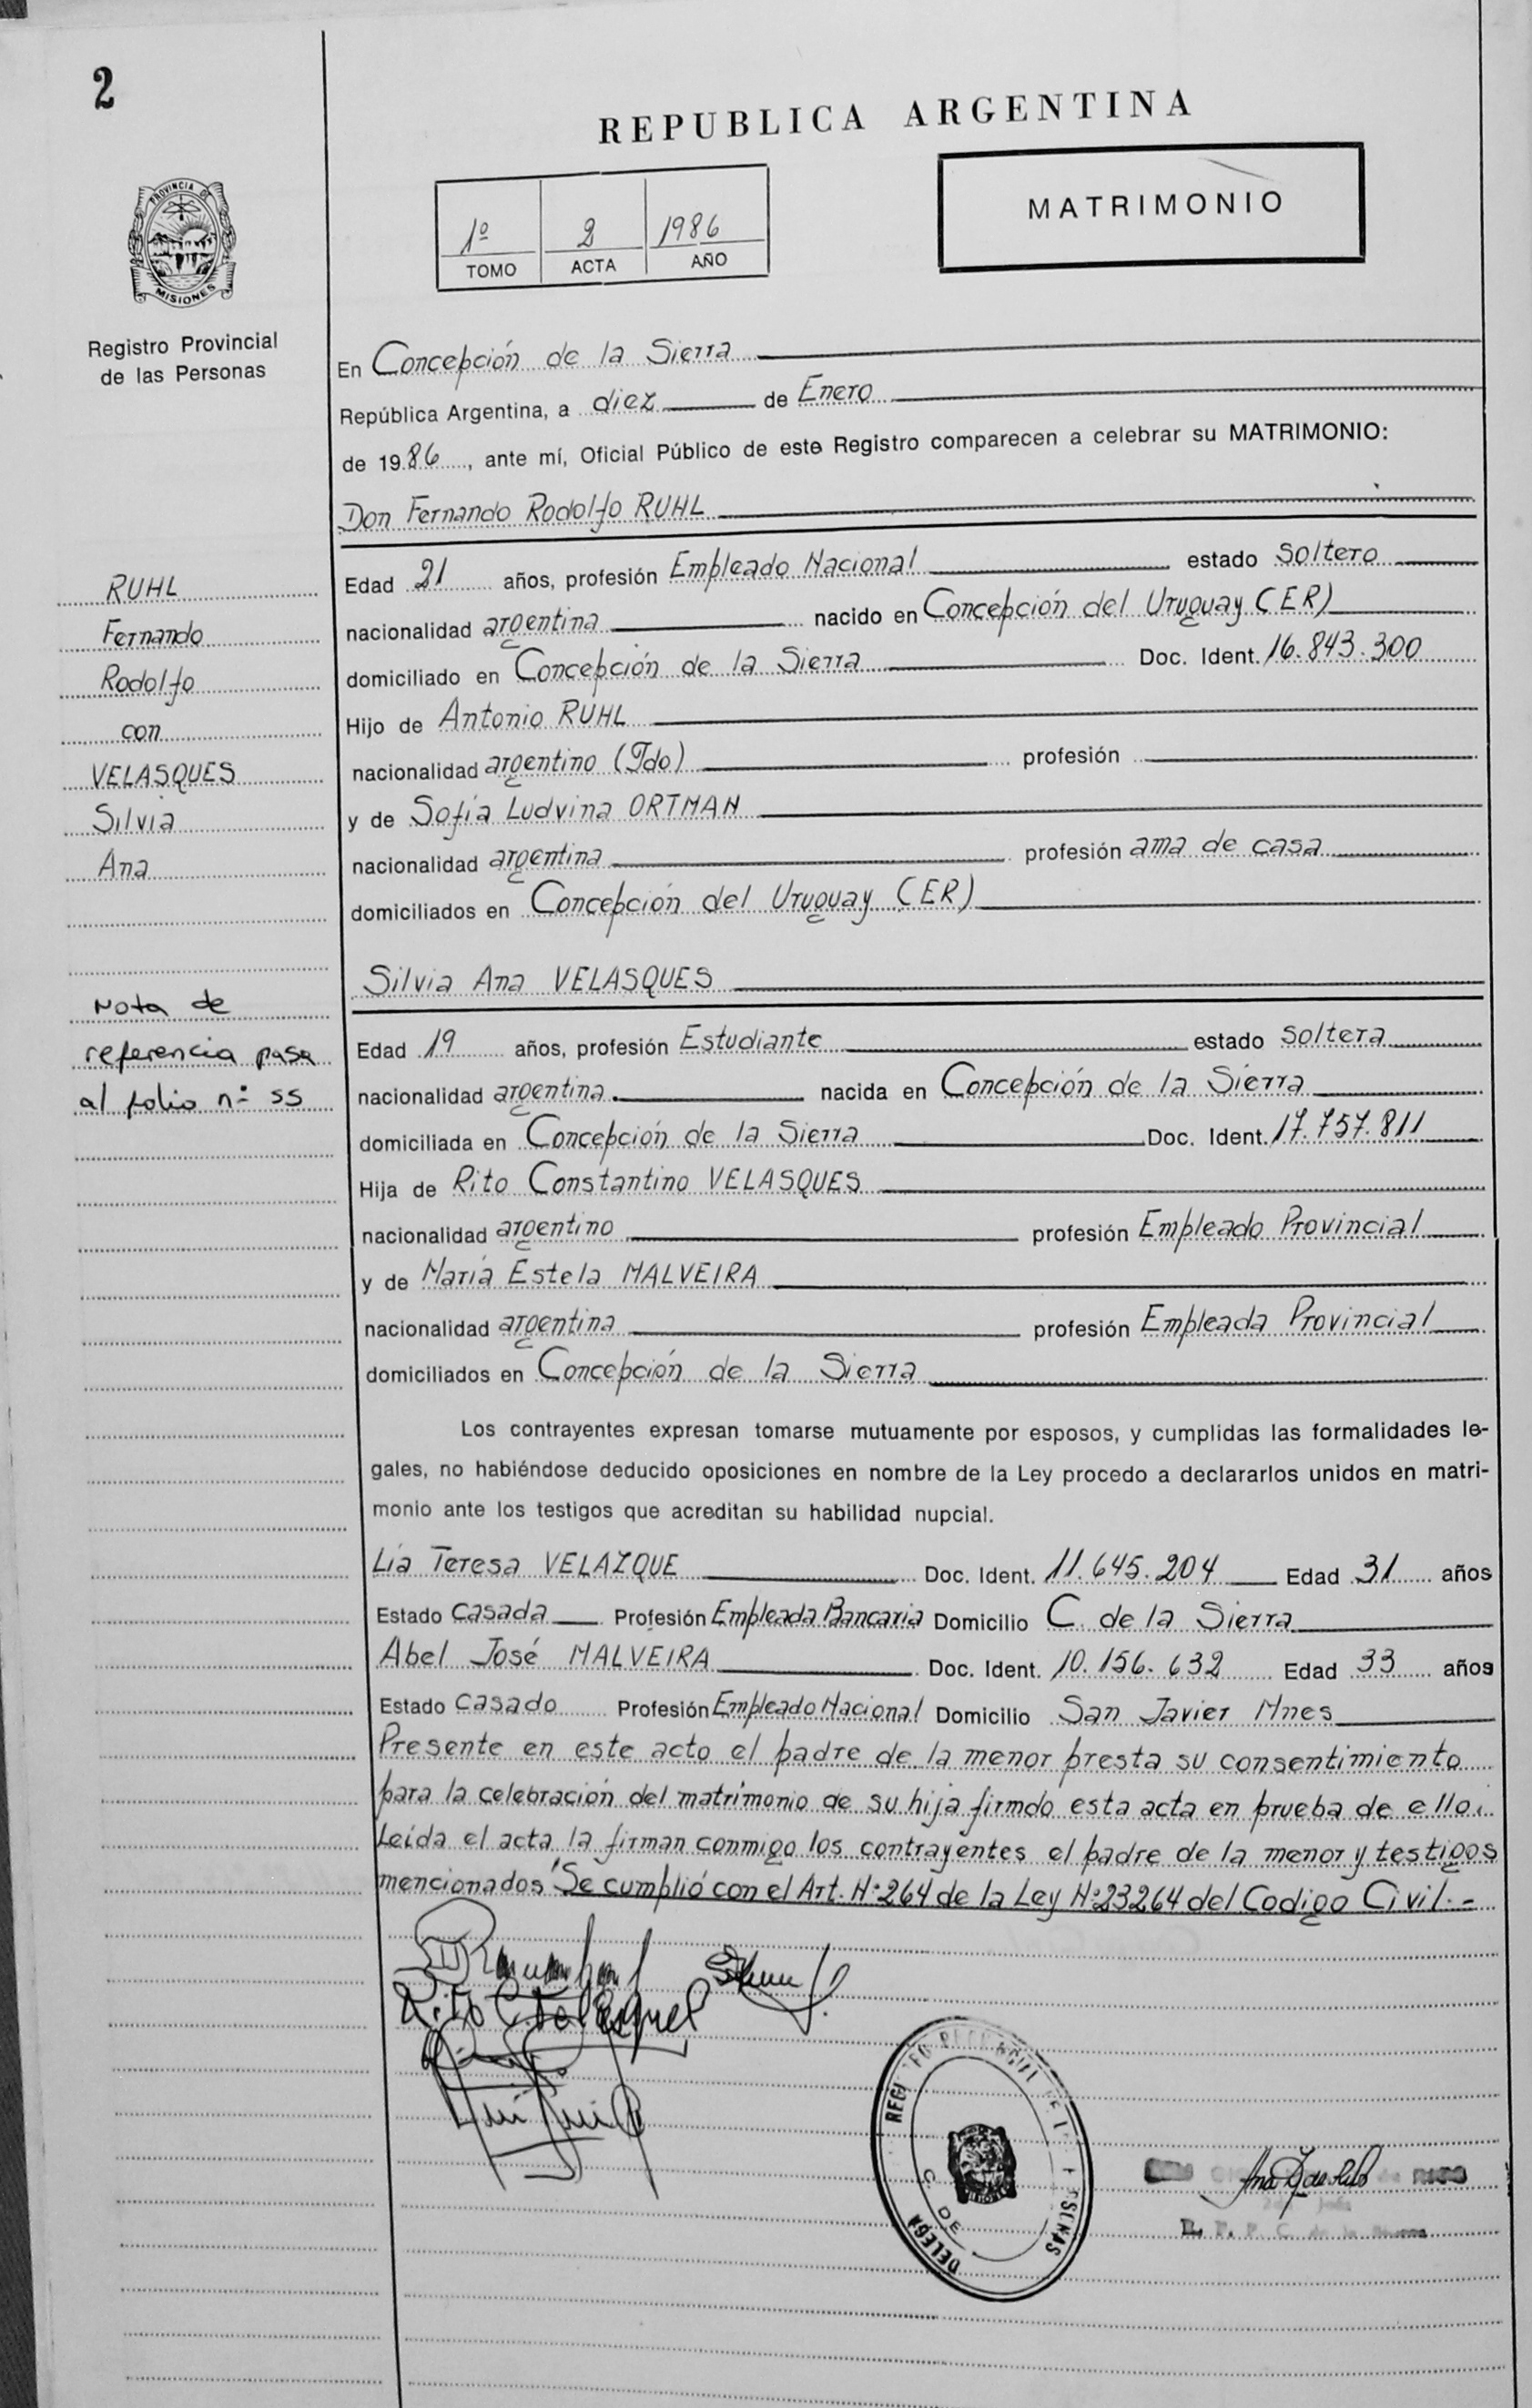 2
REPUBLICA ARGENTINA
MATRIMONIO
1º 2 1986
TOMO ACTA AÑO
PROVINCIA DE
MISIONES
Registro Provincial
de las Personas
En Concepción de la Sierra
República Argentina, a diez de Enero
de 1986, ante mí, Oficial Público de este Registro comparecen a celebrar su MATRIMONIO:
Don Fernando Rodolfo RUHL
RUHL
Fernando
Rodolfo
con
VELASQUES
Silvia
Ana
Edad 21 años, profesión Empleado Nacional estado Soltero
nacionalidad argentina nacido en Concepción del Uruguay (ER)
domiciliado en Concepción de la Sierra Doc. Ident. 16.843.300
Hijo de Antonio RUHL
nacionalidad argentino (Fdo) profesión
y de Sofía Ludvina ORTMAN
nacionalidad argentina profesión ama de casa
domiciliados en Concepción del Uruguay (ER)
Silvia Ana VELASQUES
Nota de
referencia pasa
al folio nº 55
Edad 19 años, profesión Estudiante estado Soltera
nacionalidad argentina nacida en Concepción de la Sierra
domiciliada en Concepción de la Sierra Doc. Ident. 17.757.811
Hija de Rito Constantino VELASQUES
nacionalidad argentino profesión Empleado Provincial
y de María Estela MALVEIRA
nacionalidad argentina profesión Empleada Provincial
domiciliados en Concepción de la Sierra
Los contrayentes expresan tomarse mutuamente por esposos, y cumplidas las formalidades le-
gales, no habiéndose deducido oposiciones en nombre de la Ley procedo a declararlos unidos en matri-
monio ante los testigos que acreditan su habilidad nupcial.
Lía Teresa VELAZQUE Doc. Ident. 11.645.204 Edad 31 años
Estado Casada Profesión Empleada Bancaria Domicilio C. de la Sierra
Abel José MALVEIRA Doc. Ident. 10.156.632 Edad 33 años
Estado Casado Profesión Empleado Nacional Domicilio San Javier Mnes
Presente en este acto el padre de la menor presta su consentimiento
para la celebración del matrimonio de su hija firmdo esta acta en prueba de ello.
Leída el acta la firman conmigo los contrayentes el padre de la menor y testigos
mencionados "Se cumplió con el Art. Nº 264 de la Ley Nº 23264 del Codigo Civil.-